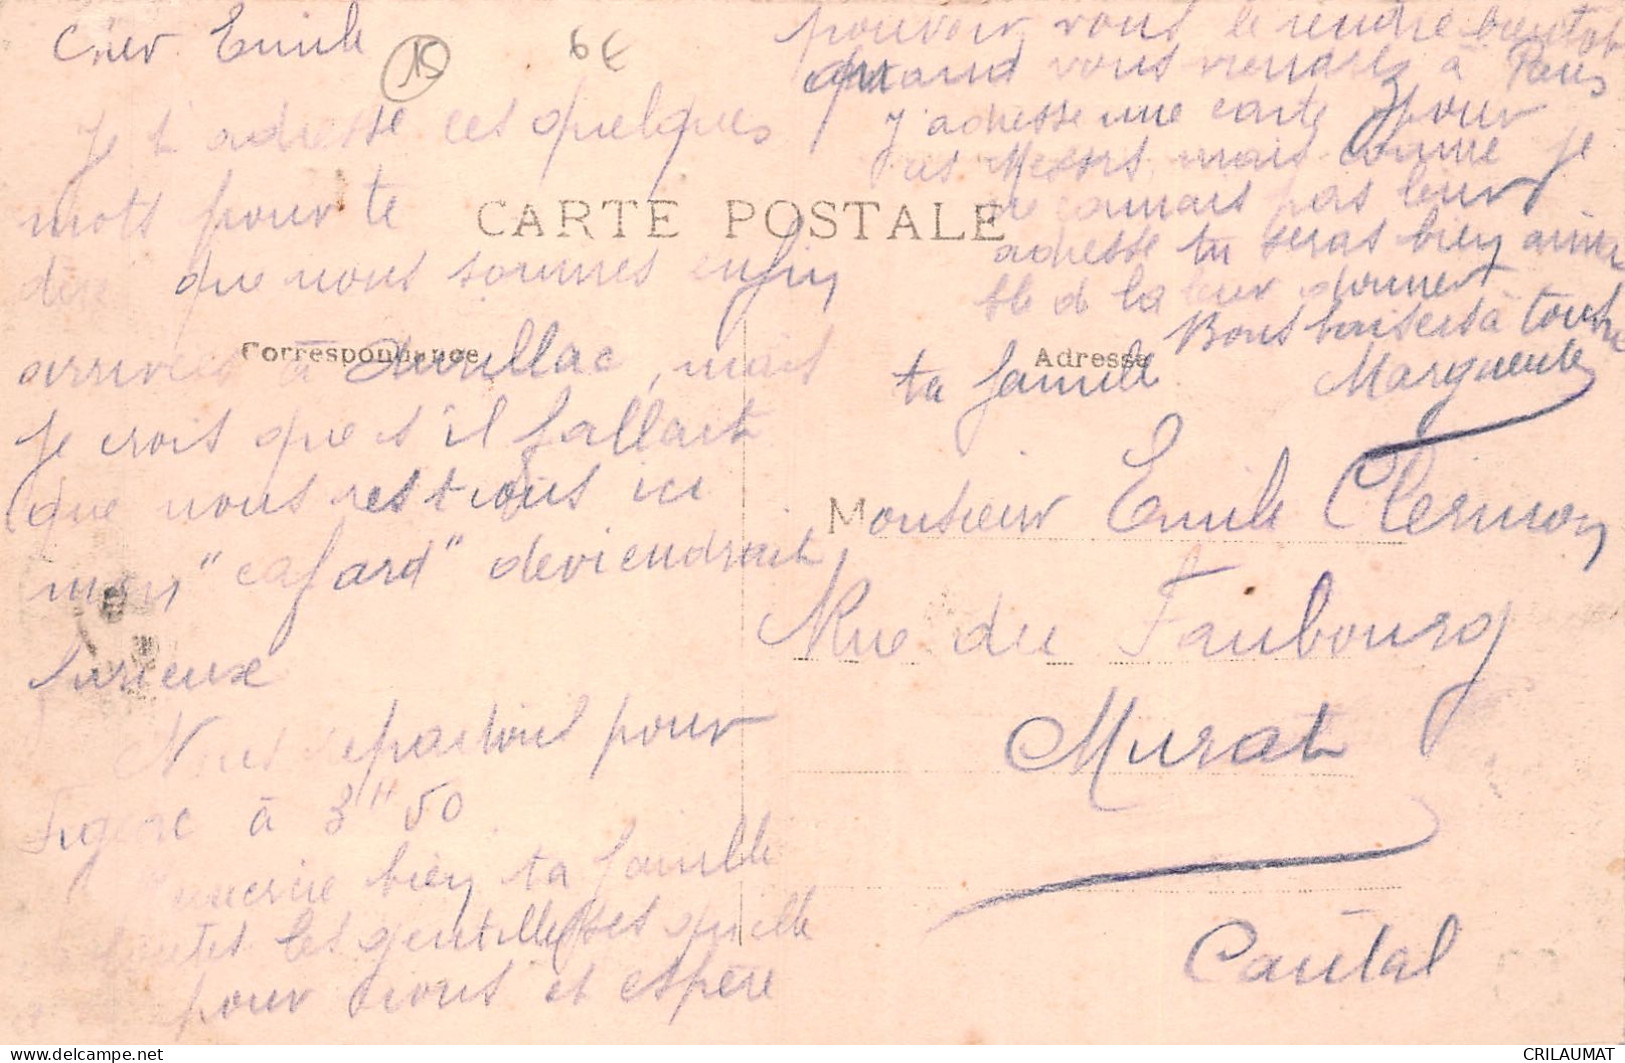 Cher Emile
15
6€
Je t'adresse ces quelques
mots pour te
CARTE POSTALE
dire que nous sommes enfin
Correspondance
arrivés à Aurillac, mais
je crois que s'il fallait
que nous restions ici
mon "cafard" deviendrait
furieux
Nous repartons pour
Figeac à 3H50
Remercie bien ta famille
toutes les gentillesses qu'elle
pour nous et espère
pouvoir vous le rendre bientot
quand vous viendrez à Paris
J'adresse une carte pour
ces Messrs mais comme je
ne connais pas leur
adresse tu seras bien aima
ble de la leur donner
Bons baisers à toute
Adresse
ta famille Marguerite
Monsieur Emile Clermon
Rue du Faubourg
Murat
Cantal
CRILAUMAT